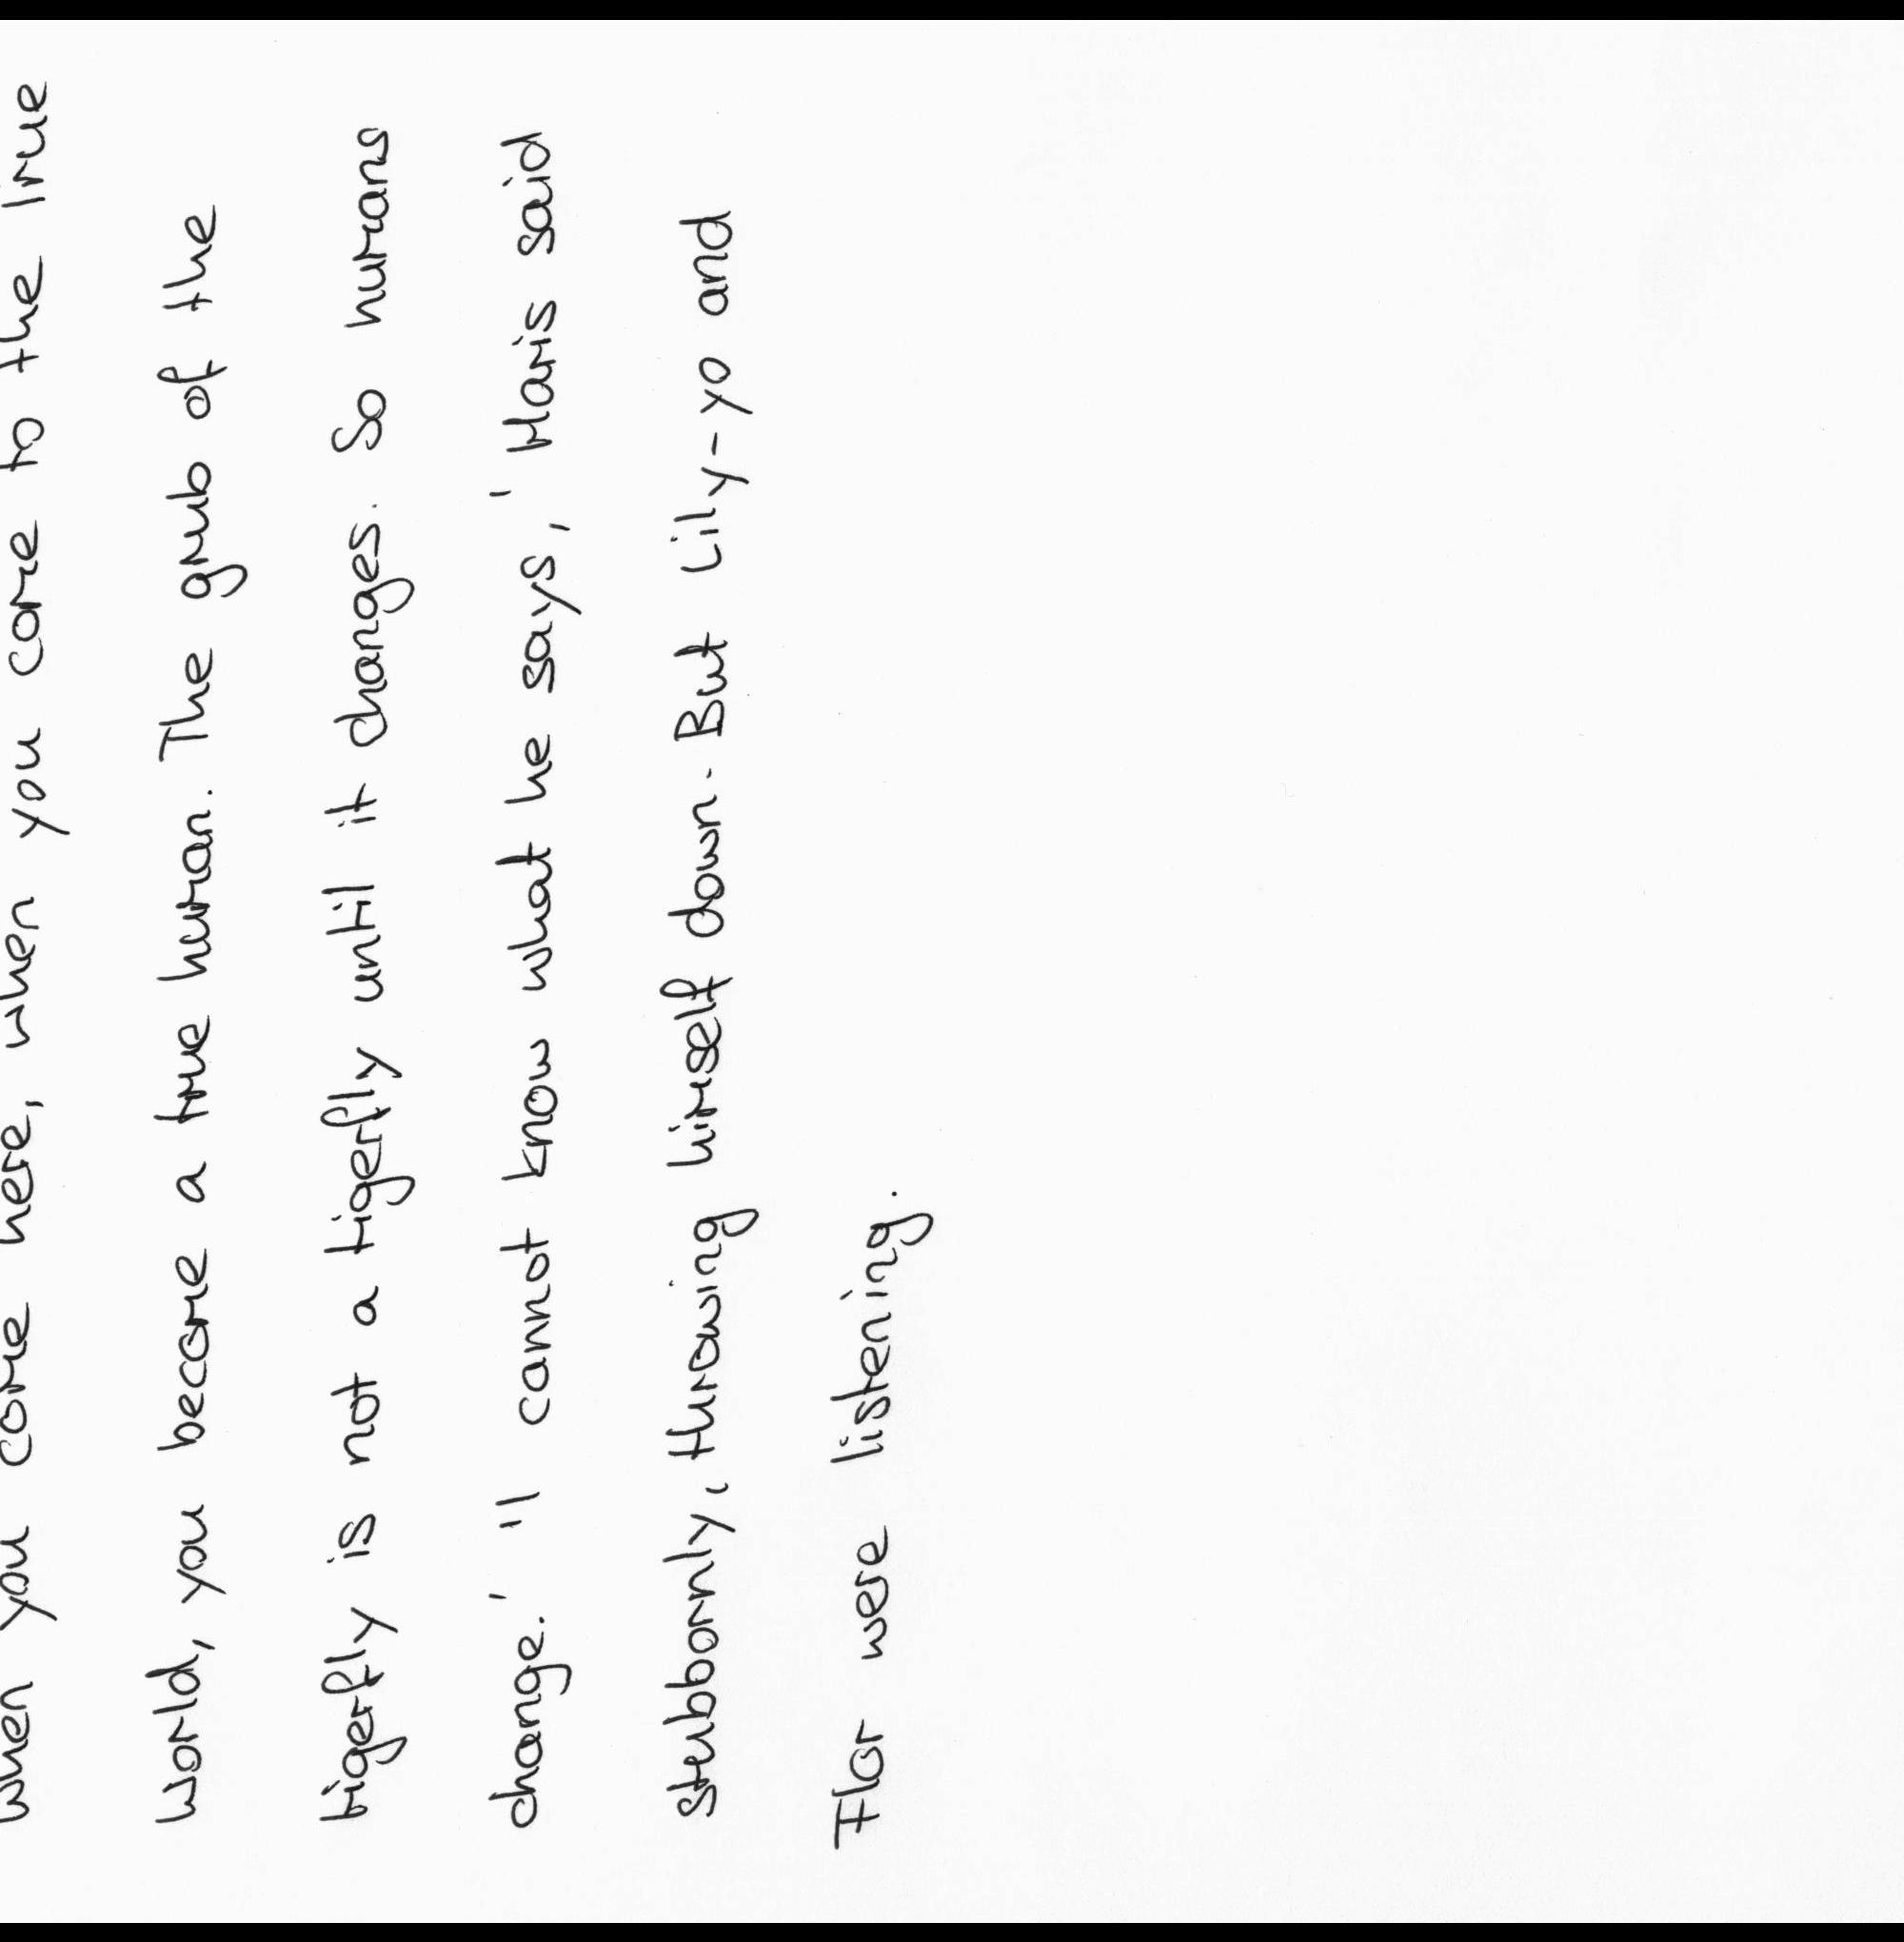 when you come here, when you come to the True
World, you become a true human. The grub of the
tigerfly is not a tigerfly until it changes. So humans
change.' 'I cannot know what he says,' Haris said
stubbornly, throwing himself down. But Lily-yo and
Flor were listening.